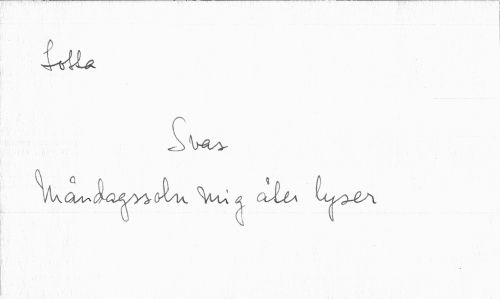 Lotta
Svar
Måndagssoln mig åter lyser